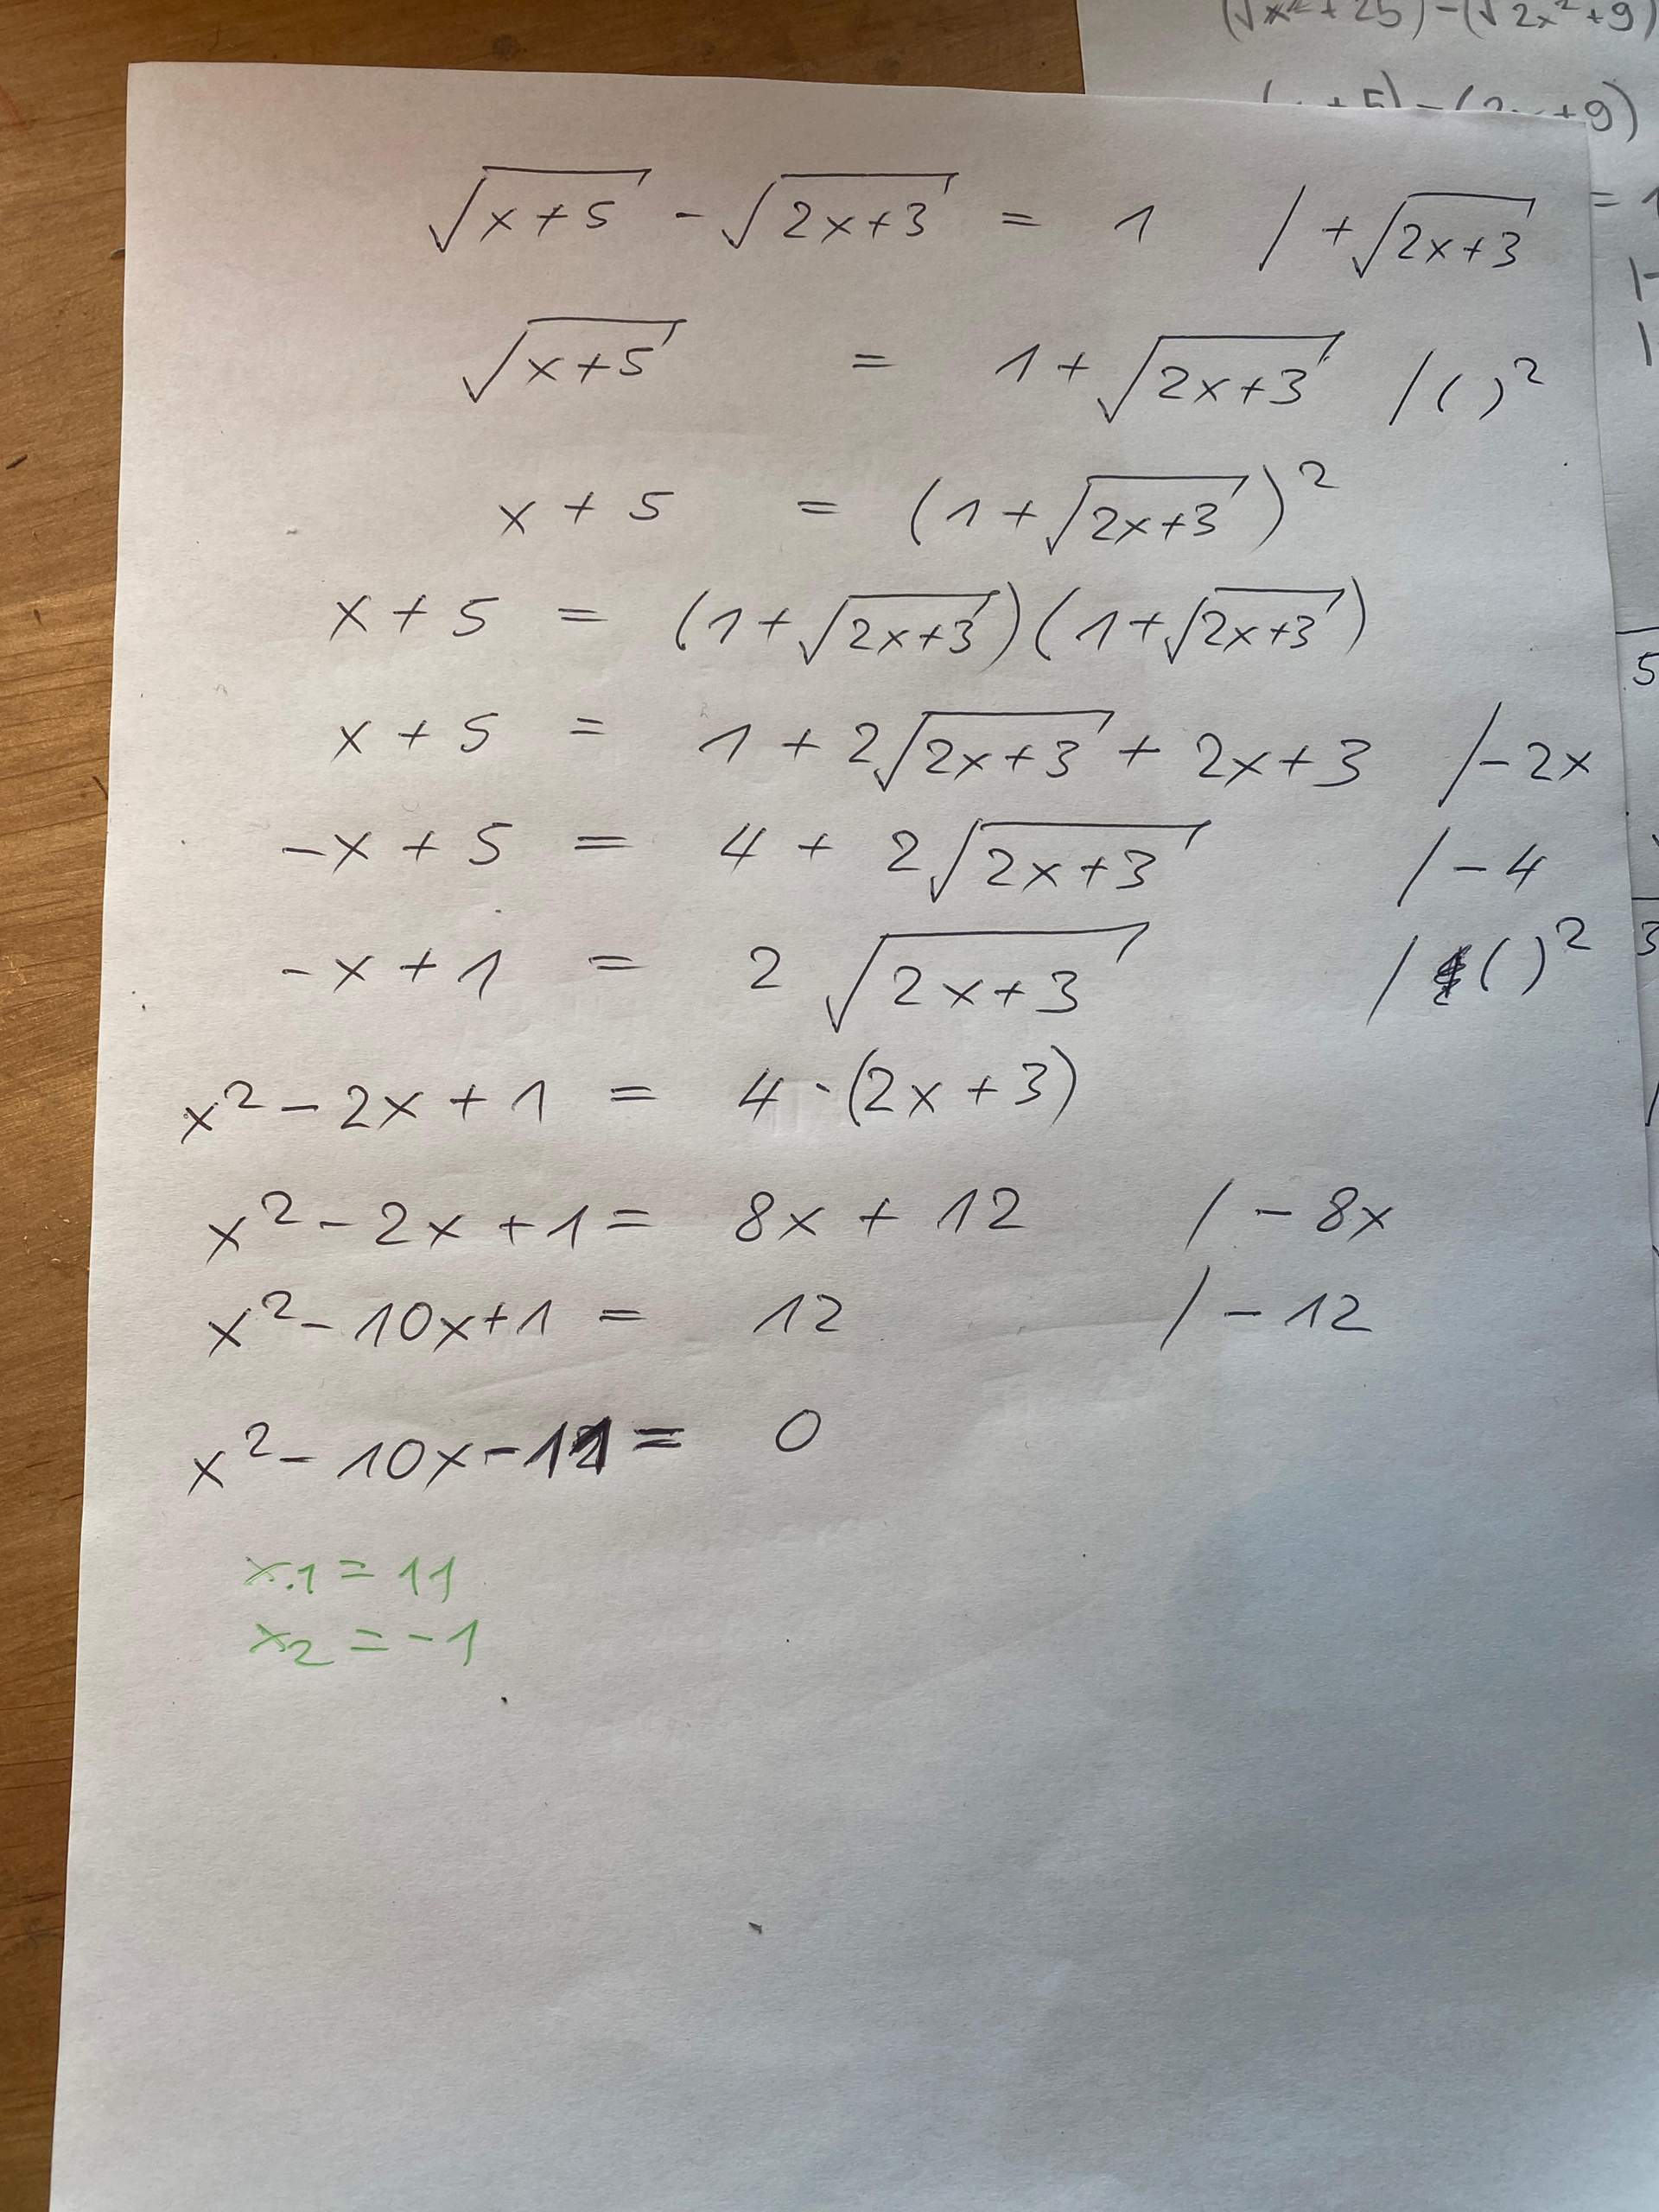 (√x²+25)-(√2x²+9)
+5)-(2x+9)
√x+5 - √2x+3 = 1 / +√2x+3
= 1
√x+5 = 1+√2x+3 / ( )²
x + 5 = (1+√2x+3)²
x + 5 = (1+√2x+3)(1+√2x+3)
5
x + 5 = 1 + 2√2x+3 + 2x+3 /-2x
-x + 5 = 4 + 2√2x+3 / -4
-x + 1 = 2 √2x+3 / ( )²
3
x² - 2x + 1 = 4 · (2x + 3)
x² - 2x + 1 = 8x + 12 / - 8x
x² - 10x + 1 = 12 / - 12
x² - 10x - 11 = 0
x1 = 11
x2 = -1